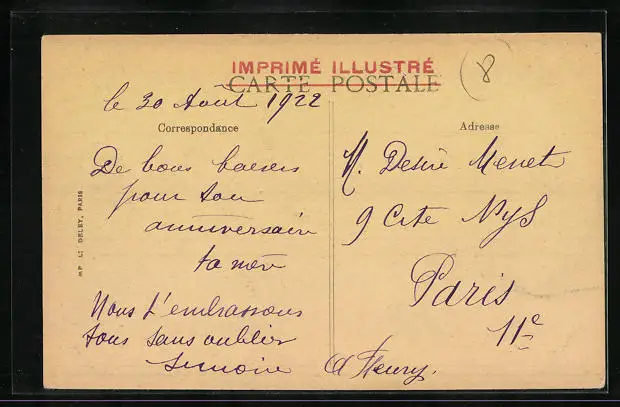 IMPRIMÉ ILLUSTRÉ
CARTE POSTALE
8
le 30 Août 1922
Correspondance
Adresse
De bons baisers
pour ton
anniversaire
ta mère
Nous t'embrassons
tous sans oublier
Simone
M. Désiré Menet
9 Cité Nys
Paris
11e
A Fleury.
IMP LT DELEY, PARIS